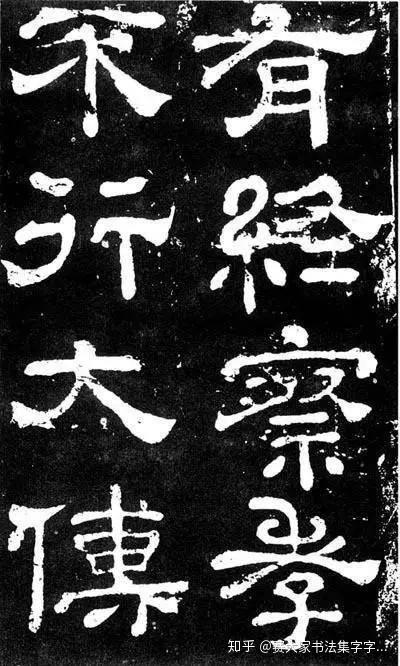 有經察孝
不行大傅
知乎 @赛大家书法集字字...